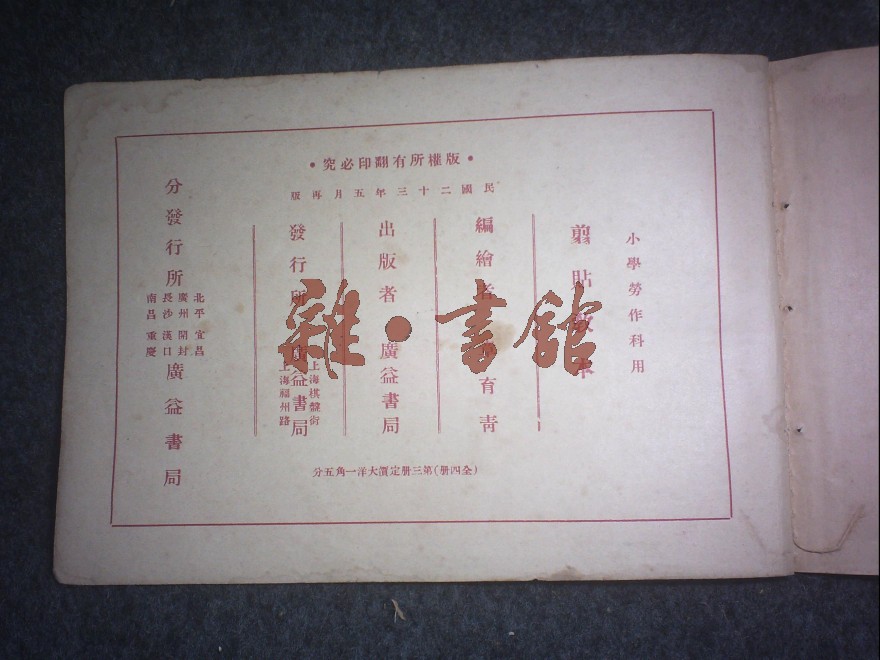 •究必印翻有所權版•
版再月五年三十二國民
小學勞作科用
剪貼教本
編繪者 育青
出版者 廣益書局
發行所 廣益書局
上海棋盤街
上海福州路
分發行所
北平 宜昌
廣州 開封
長沙 漢口
南昌 重慶
廣益書局
分五角一洋大價定册三第(册四全)
雜•書館